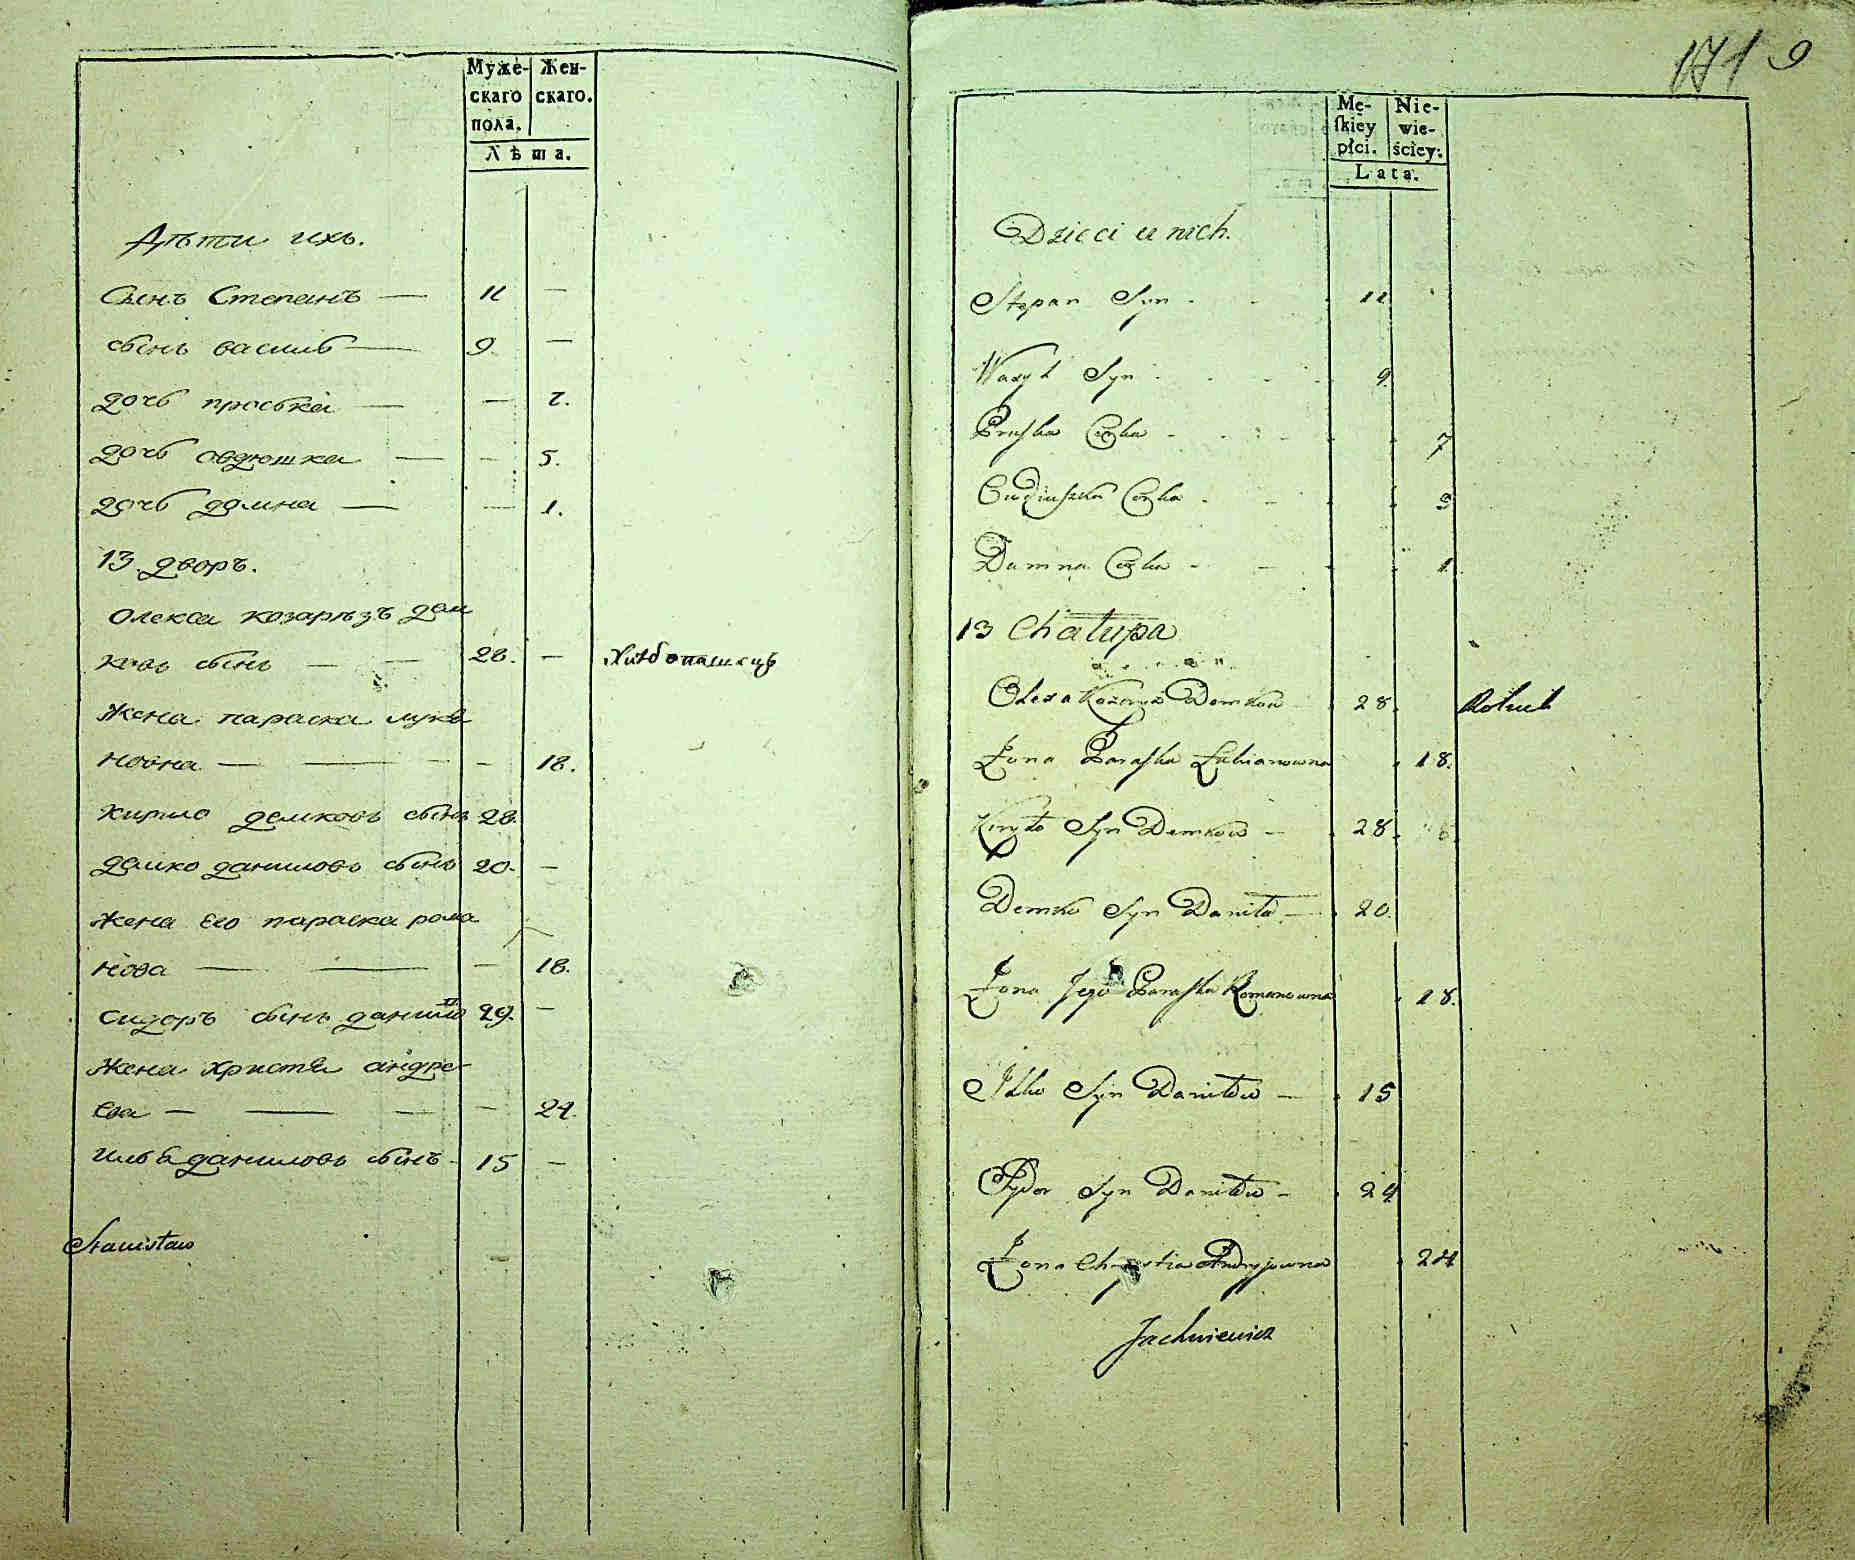 Муже-
скаго
пола.
Жен-
скаго.
Лѣта.
Дѣти ихъ.
Сынъ Степанъ — 11 —
сынъ василь — 9. —
дочь праська — — 7.
дочь овдюшка — — 5.
дочь домна — — 1.
13. дворъ.
Олекса козарѣзъ дем
ковъ сынъ — — 28. — Хлѣбопашецъ
Жена параска лукя
новна — — — 18.
кирило демковъ сынъ 28.
демко даниловъ сынъ 20. —
жена его параска рома
нова — — — 18.
сидоръ сынъ данило 29. —
Жена христя андре
ева — — — — 24.
илья даниловъ сынъ 15 —
Stanisław
171 9
Mę-
ſkiey
płci.
Nie-
wie-
ściey.
Lata.
Dzieci u nich.
Stepan Syn 11
Wasyl Syn 9
Praſka Corka 7
Owdiuszka Corka 5
Dumna Corka 1
13 Chałupa
Olexa Kozeryz Demkow 28. Rolnik
Żona Paraſka Łukianowna 18.
Kiryło Syn Demkow — 28
Demko Syn Daniła — 20.
Żona Jego Paraſka Romanowna 18.
Ilko Syn Daniłow — 15
Sydor Syn Daniłow — 29
Żona Chrystia Andryjowna 24
Jachniewicz